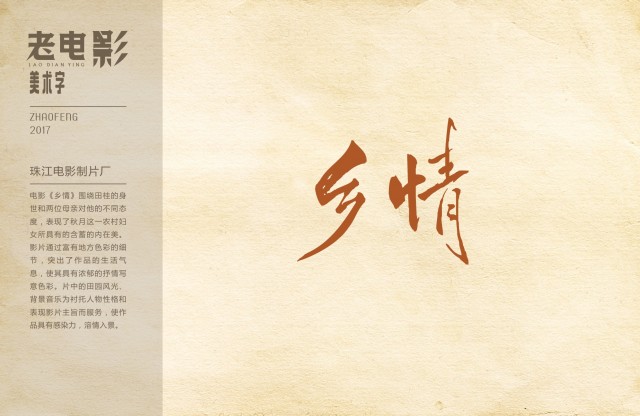 老电影
LAO DIAN YING
美术字
ZHAOFENG
2017
珠江电影制片厂
电影《乡情》围绕田桂的身
世和两位母亲对他的不同态
度，表现了秋月这一农村妇
女所具有的含蓄的内在美。
影片通过富有地方色彩的细
节，突出了作品的生活气
息，使其具有浓郁的抒情写
意色彩。片中的田园风光、
背景音乐为衬托人物性格和
表现影片主旨而服务，使作
品具有感染力，溶情入景。
乡情